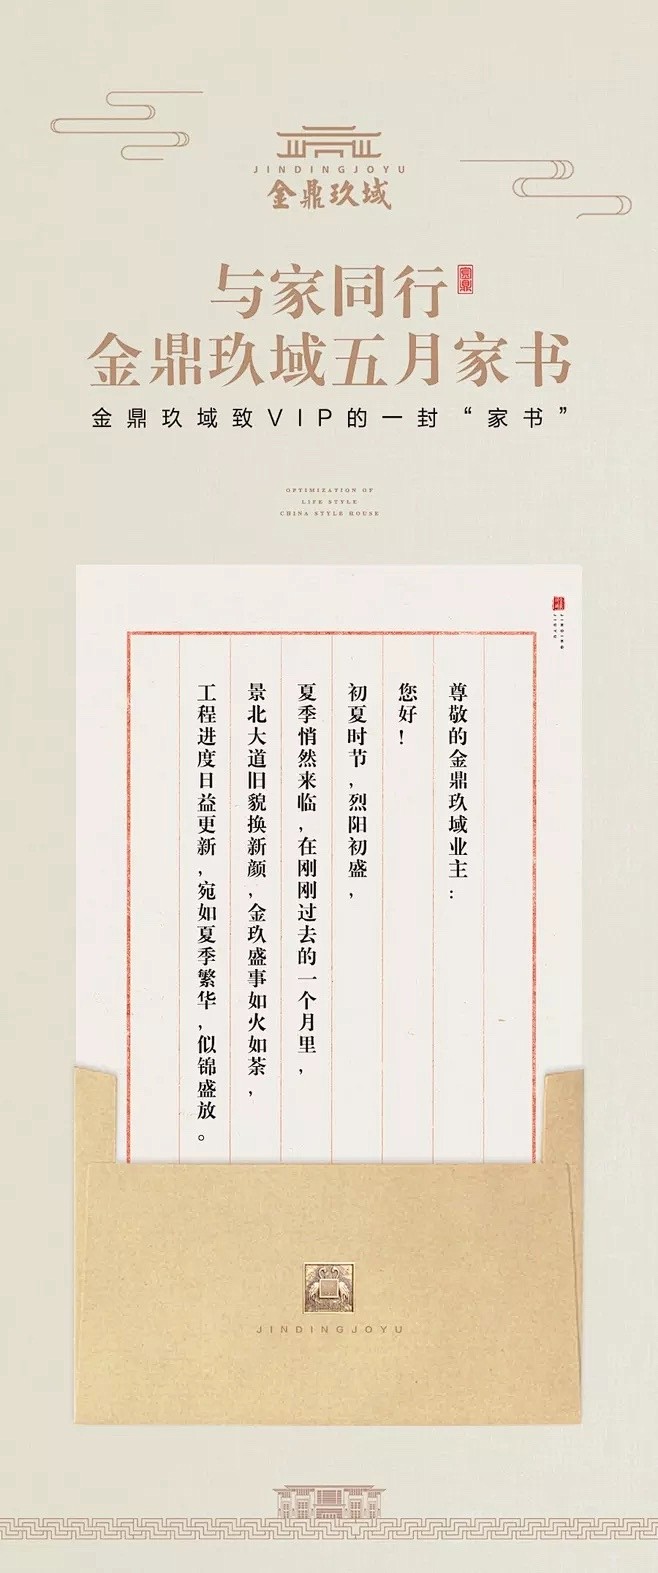 JINDINGJOYU
金鼎玖域
与家同行
金鼎玖域五月家书
金鼎玖域致VIP的一封“家书”
OPTIMIZATION OF
LIFE STYLE
CHINA STYLE HOUSE
尊敬的金鼎玖域业主：
您好！
初夏时节，烈阳初盛，
夏季悄然来临，在刚刚过去的一个月里，
景北大道旧貌换新颜，金玖盛事如火如荼，
工程进度日益更新，宛如夏季繁华，似锦盛放。
JINDINGJOYU